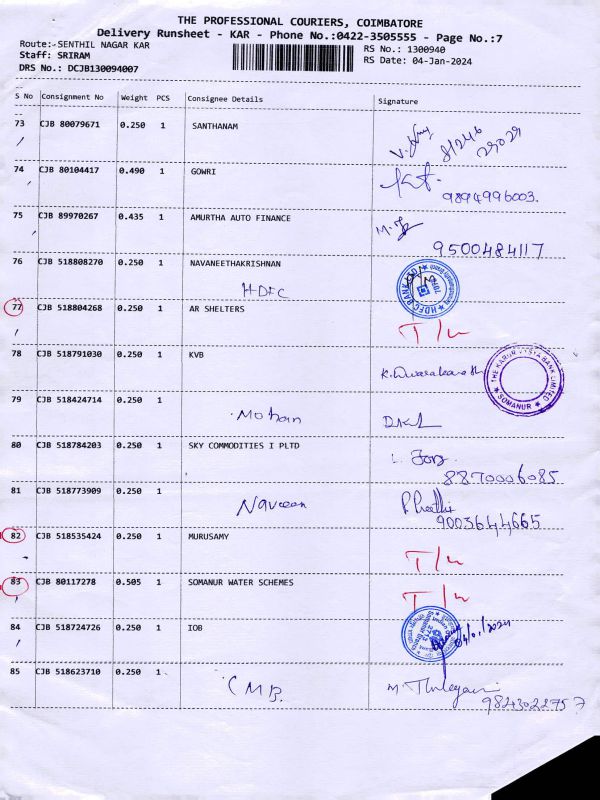 THE PROFESSIONAL COURIERS, COIMBATORE
Delivery Runsheet - KAR - Phone No.:0422-3505555 - Page No.:7
Route:-SENTHIL NAGAR KAR
RS No.: 1300940
Staff: SRIRAM
RS Date: 04-Jan-2024
DRS No.: DCJB130094007
S No Consignment No Weight PCS Consignee Details Signature
73 CJB 80079671 0.250 1 SANTHANAM
74 CJB 80104417 0.490 1 GOWRI
9894996003.
75 CJB 89970267 0.435 1 AMURTHA AUTO FINANCE
9500484117
76 CJB 518808270 0.250 1 NAVANEETHAKRISHNAN
HDFC
77 CJB 518804268 0.250 1 AR SHELTERS
T/L
78 CJB 518791030 0.250 1 KVB
THE KARUR VYSYA BANK LIMITED
* SOMANUR *
79 CJB 518424714 0.250 1
Mohan
80 CJB 518784203 0.250 1 SKY COMMODITIES I PLTD
8870006085
81 CJB 518773909 0.250 1
Naveen
9003644665
82 CJB 518535424 0.250 1 MURUSAMY
T/L
83 CJB 80117278 0.505 1 SOMANUR WATER SCHEMES
T/L
84 CJB 518724726 0.250 1 IOB
85 CJB 518623710 0.250 1
CMB.
9843022757